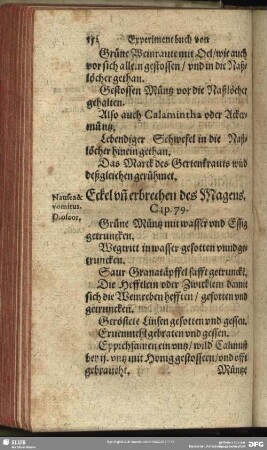 152 Experiment buch von
Grüne Weinraute mit Oel / wie auch
vor sich allein gestossen / vnd in die Naß-
löcher gethan.
Gestossen Müntz vor die Naßlöcher
gehalten.
Also auch Calamintha oder Acker-
müntz.
Lebendiger Schwefel in die Naß-
löcher hinein gethan.
Das Marck des Gertenkrauts wird
deßgleichen gerühmet.
Nausea &
vomitus.
Dioscor,
Eckel vñ erbrechen des Magens.
Cap. 79.
Grüne Müntz mit wasser vnd Essig
getruncken.
Wegtritt in wasser gesotten vnnd ge-
truncken.
Saur Granatäpffel safft getrunckẽ.
Die Hefftlein oder Zwicklein damit
sich die Weinreben hefften / gesotten vnd
getruncken.
Geröstete Linsen gesotten vnd gessen.
gebraten vnd gessen.
ein vntz / wild Calmintz
bey ij. vntz mit Honig gestossen / vnd offt
gebraucht. Müntz
SLUB
DFG